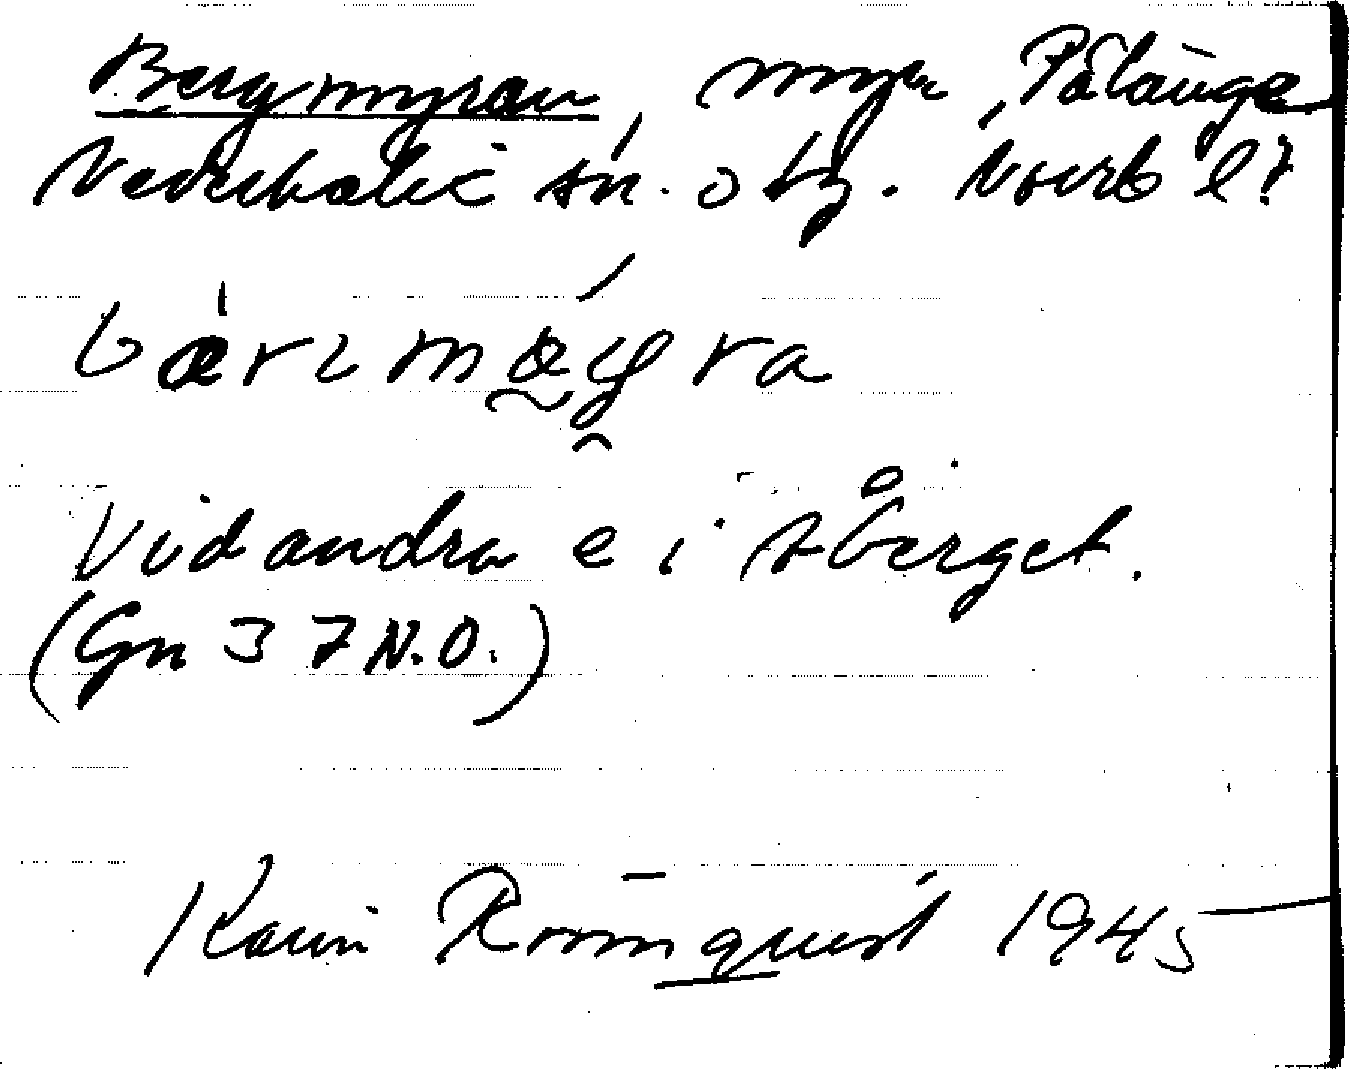 Bergmyran, myr, Pålänge
Nederkalix sn. o tg. Norrb l?
Vid andra e i Åberget.
(Gn 37 N.O.)
Karin Römquist 1945